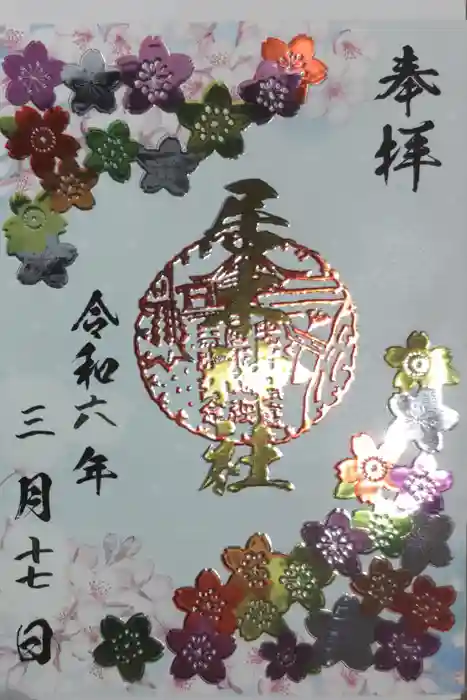 奉拝
居木神社
令和六年
三月十七日